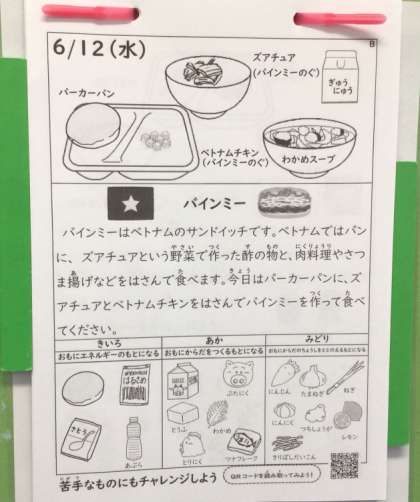 6/12(水)
B
ズアチュア
(バインミーのぐ)
ぎゅう
にゅう
バーカーパン
ベトナムチキン
(バインミーのぐ)
わかめスープ
バインミー
バインミーはベトナムのサンドイッチです。ベトナムではパン
に、ズアチュアという野菜で作った酢の物と、肉料理やさつ
ま揚げなどをはさんで食べます。今日はバーカーパンに、ズ
アチュアとベトナムチキンをはさんでバインミーを作って食べ
てください。
きいろ あか みどり
おもにエネルギーのもとになる おもにからだをつくるもとになる おもにからだのちょうしをととのえるもとになる
はるさめ
ぶたにく
にんじん
たまねぎ
ねぎ
さとう
とうふ
わかめ
にんにく
つちしょうが
レモン
あぶら
とりにく
ツナフレーク
きりぼしだいこん
苦手なものにもチャレンジしよう
QRコードを読み取ってみよう!